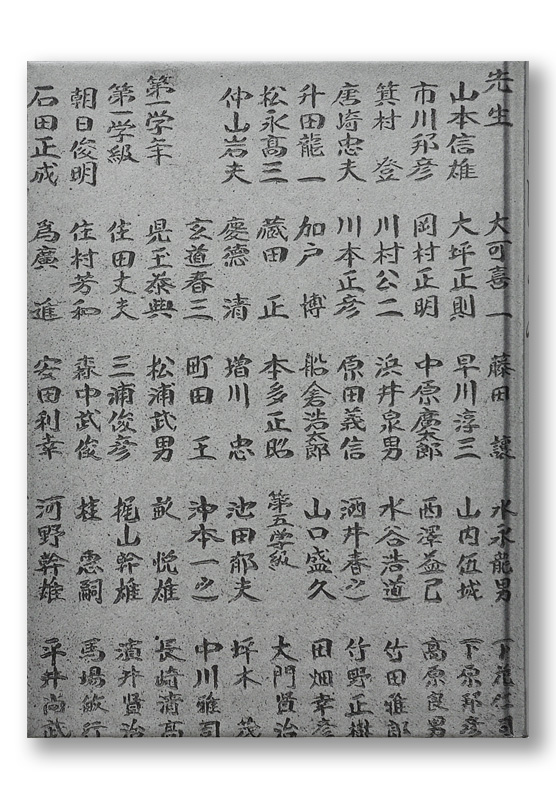 先生 大可喜一 藤田 譲 水永龍男
山本信雄 大坪正則 早川淳三 山内伍城 下原邦彦
市川邦彦 岡村正明 中原慶太郎 西澤益己 高原良男
箕村 登 川村公二 浜井泉男 水谷浩道 竹田雅郎
唐崎忠夫 川本正彦 原田義信 酒井春之 竹野正樹
升田龍一 加戸 博 船倉浩太郎 山口盛久 田畑幸彦
松永高三 蔵田 正 本多正昭 第五学級 大門賢治
仲山岩夫 慶徳 清 増川 忠 池田郁夫 坪木 茂
玄道春三 町田 王 沖本一之 中川雅司
第一学年 児玉泰典 松浦武男 畝 悦雄 長崎清高
第一学級 住田丈夫 三浦俊彦 梶山幹雄 濱井賢治
朝日俊明 住村芳和 森中武俊 桂 恵嗣 馬場敏行
石田正成 爲廣 進 安田利幸 河野幹雄 平井尚武